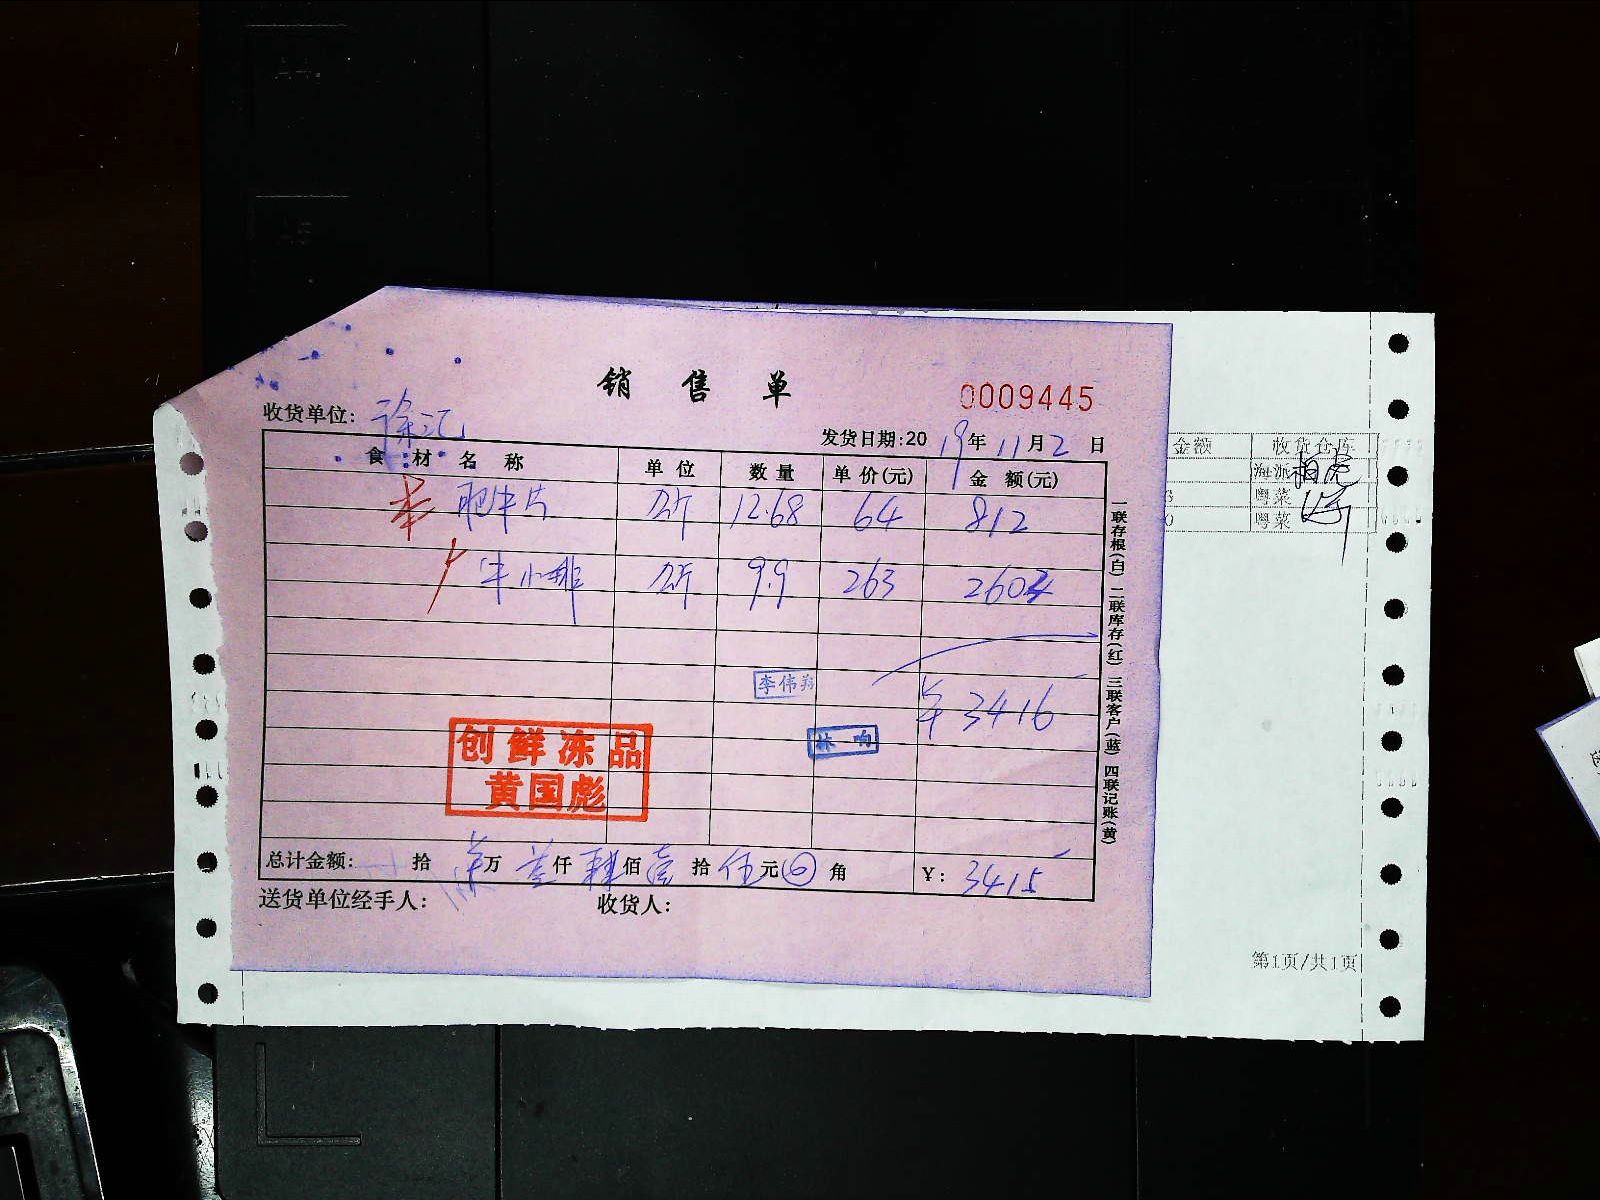 销售单
0009445
收货单位: 徐汇
发货日期:2019年11月2日
食材名称 单位 数量 单价(元) 金额(元)
肥牛片 公斤 12.68 64 812
牛小排 公斤 9.9 263 2604
李伟翔
¥3416
林 响
创鲜冻品
黄国彪
总计金额: 拾 万 叁仟 肆佰 壹拾 伍元 角 ¥: 3415
送货单位经手人: 收货人:
一联存根(白) 二联库存(红) 三联客户(蓝) 四联记账(黄)
金额 收货仓库
海派
粤菜
0 粤菜
第1页/共1页